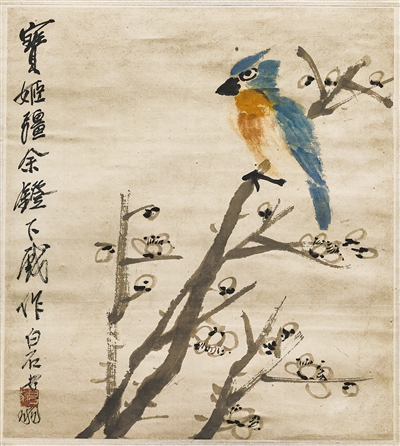 寶姬彊余鐙下戲作白石翁